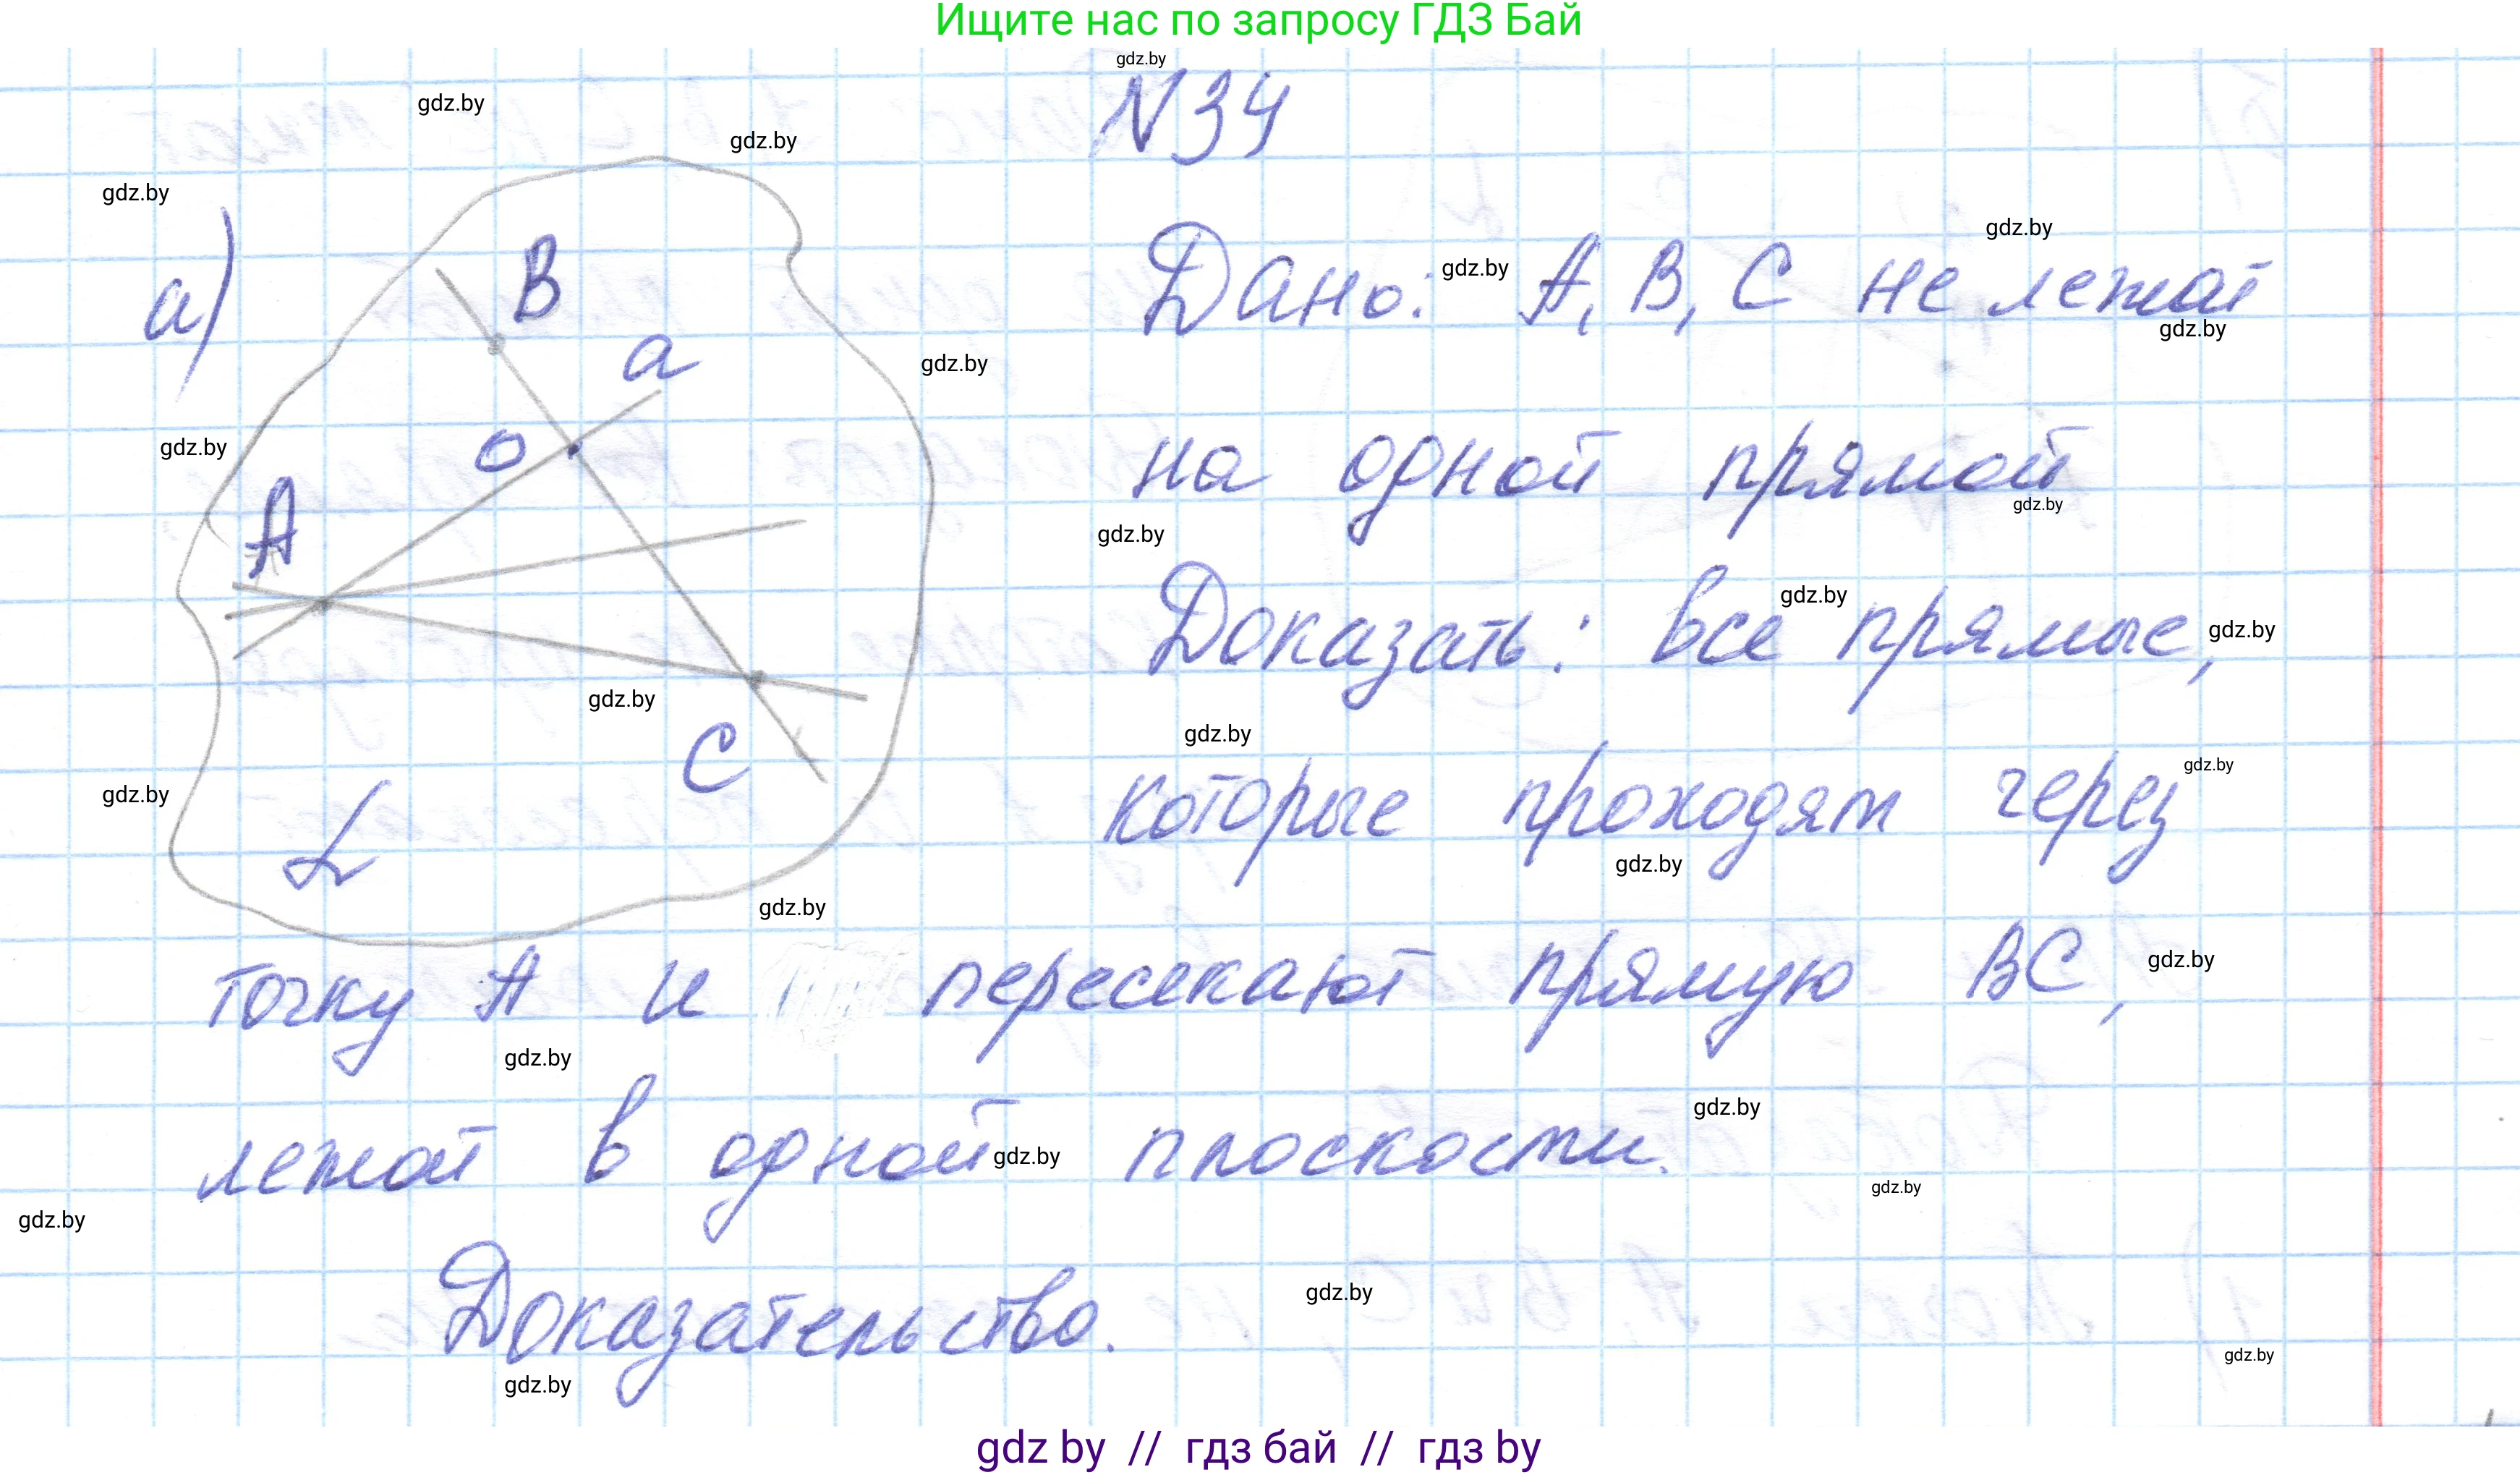 Ищите нас по запросу ГДЗ Бай
gdz.by
N34
gdz.by
gdz.by
gdz.by
а)
B
a
o
A
C
L
gdz.by
Дано: gdz.by A, B, C не лежат
gdz.by
gdz.by
gdz.by
на одной прямой
gdz.by
gdz.by
Доказать: все gdz.by прямые, gdz.by
gdz.by
gdz.by
gdz.by
которые проходят через
gdz.by
gdz.by
gdz.by
точку A и пересекают прямую BC, gdz.by
gdz.by
gdz.by
лежат в одной gdz.by плоскости.
gdz.by
gdz.by
Доказательство.
gdz.by
gdz.by
gdz.by
gdz by // гдз бай // гдз by